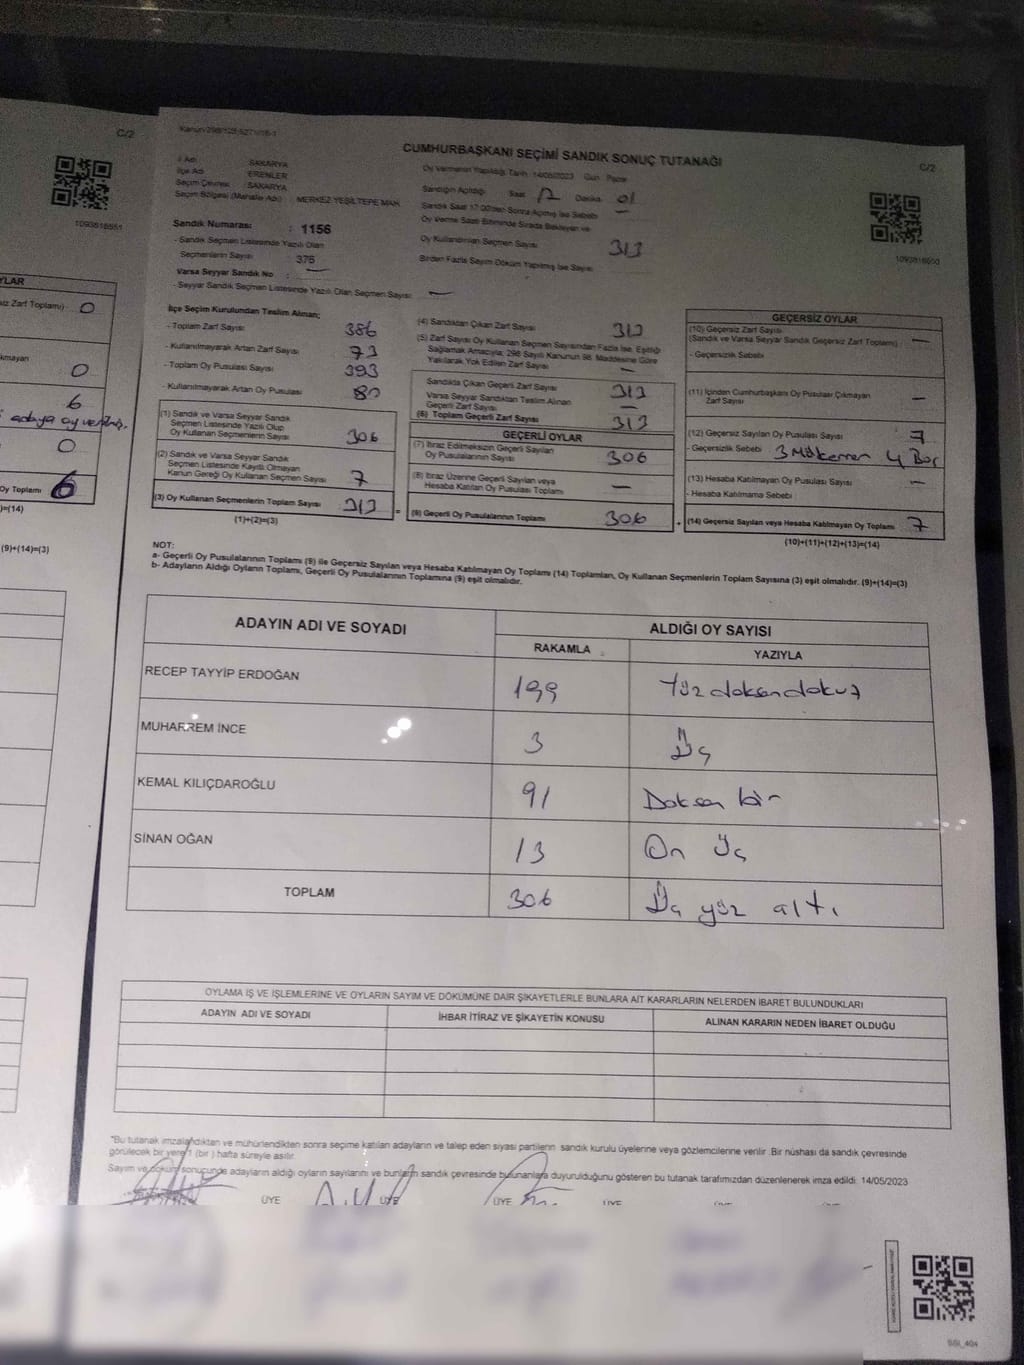 C/2
1093818551
YLAR
siz Zarf Toplamı) 0
kmayan
0
6
adaya oy verilmiş.
0
Oy Toplamı 6
)=(14)
(9)+(14)=(3)
Kanun 298/125,6271/16-1
CUMHURBAŞKANI SEÇİMİ SANDIK SONUÇ TUTANAĞI
C/2
1093818550
İl Adı SAKARYA
İlçe Adı ERENLER
Seçim Çevresi SAKARYA
Seçim Bölgesi (Mahalle Adı) MERKEZ YEŞİLTEPE MAH
Sandık Numarası : 1156
- Sandık Seçmen Listesinde Yazılı Olan
Seçmenlerin Sayısı 375
Varsa Seyyar Sandık No : —
- Seyyar Sandık Seçmen Listesinde Yazılı Olan Seçmen Sayısı —
Oy Vermenin Yapıldığı Tarih 14/05/2023 Gün Pazar
Sandığın Açıldığı Saat 17 Dakika 01
Sandık Saat 17:00'den Sonra Açılmış İse Sebebi —
Oy Verme Saati Bitiminde Sırada Bekleyen ve
Oy Kullandırılan Seçmen Sayısı 313
Birden Fazla Sayım Döküm Yapılmış İse Sayısı
İlçe Seçim Kurulundan Teslim Alınan;
- Toplam Zarf Sayısı 386
- Kullanılmayarak Artan Zarf Sayısı 73
- Toplam Oy Pusulası Sayısı 393
- Kullanılmayarak Artan Oy Pusulası 80
(1) Sandık ve Varsa Seyyar Sandık
Seçmen Listesinde Yazılı Olup
Oy Kullanan Seçmenlerin Sayısı 306
(2) Sandık ve Varsa Seyyar Sandık
Seçmen Listesinde Kayıtlı Olmayan
Kanun Gereği Oy Kullanan Seçmen Sayısı 7
(3) Oy Kullanan Seçmenlerin Toplam Sayısı 313
(1)+(2)=(3)
(4) Sandıktan Çıkan Zarf Sayısı 313
(5) Zarf Sayısı Oy Kullanan Seçmen Sayısından Fazla İse, Eşitliği
Sağlamak Amacıyla; 298 Sayılı Kanunun 98. Maddesine Göre
Yakılarak Yok Edilen Zarf Sayısı —
Sandıkta Çıkan Geçerli Zarf Sayısı 313
Varsa Seyyar Sandıktan Teslim Alınan
Geçerli Zarf Sayısı —
(6) Toplam Geçerli Zarf Sayısı 313
GEÇERLİ OYLAR
(7) İtiraz Edilmeksizin Geçerli Sayılan
Oy Pusulalarının Sayısı 306
(8) İtiraz Üzerine Geçerli Sayılan veya
Hesaba Katılan Oy Pusulası Toplamı —
(9) Geçerli Oy Pusulalarının Toplamı 306
GEÇERSİZ OYLAR
(10) Geçersiz Zarf Sayısı
(Sandık ve Varsa Seyyar Sandık Geçersiz Zarf Toplamı) —
- Geçersizlik Sebebi
(11) İçinden Cumhurbaşkanı Oy Pusulası Çıkmayan
Zarf Sayısı —
(12) Geçersiz Sayılan Oy Pusulası Sayısı 7
- Geçersizlik Sebebi 3 Mükerrer 4 Boş
(13) Hesaba Katılmayan Oy Pusulası Sayısı —
- Hesaba Katılmama Sebebi
(14) Geçersiz Sayılan veya Hesaba Katılmayan Oy Toplamı 7
(10)+(11)+(12)+(13)=(14)
NOT:
a- Geçerli Oy Pusulalarının Toplamı (9) ile Geçersiz Sayılan veya Hesaba Katılmayan Oy Toplamı (14) Toplamları, Oy Kullanan Seçmenlerin Toplam Sayısına (3) eşit olmalıdır. (9)+(14)=(3)
b- Adayların Aldığı Oyların Toplamı, Geçerli Oy Pusulalarının Toplamına (9) eşit olmalıdır.
ADAYIN ADI VE SOYADI ALDIĞI OY SAYISI
RAKAMLA YAZIYLA
RECEP TAYYİP ERDOĞAN 199 Yüzdoksandokuz
MUHARREM İNCE 3 Üç
KEMAL KILIÇDAROĞLU 91 Doksan bir
SİNAN OĞAN 13 On Üç
TOPLAM 306 Üç yüz altı
OYLAMA İŞ VE İŞLEMLERİNE VE OYLARIN SAYIM VE DÖKÜMÜNE DAİR ŞİKAYETLERLE BUNLARA AİT KARARLARIN NELERDEN İBARET BULUNDUKLARI
ADAYIN ADI VE SOYADI İHBAR İTİRAZ VE ŞİKAYETİN KONUSU ALINAN KARARIN NEDEN İBARET OLDUĞU
"Bu tutanak imzalandıktan ve mühürlendikten sonra seçime katılan adayların ve talep eden siyasi partilerin sandık kurulu üyelerine veya gözlemcilerine verilir. Bir nüshası da sandık çevresinde
görülecek bir yere 1 (bir) hafta süreyle asılır.
Sayım ve döküm sonucunda adayların aldığı oyların sayılarını ve bunların sandık çevresinde bulunanlara duyurulduğunu gösteren bu tutanak tarafımızdan düzenlenerek imza edildi. 14/05/2023
ÜYE ÜYE ÜYE ÜYE
SSI_404